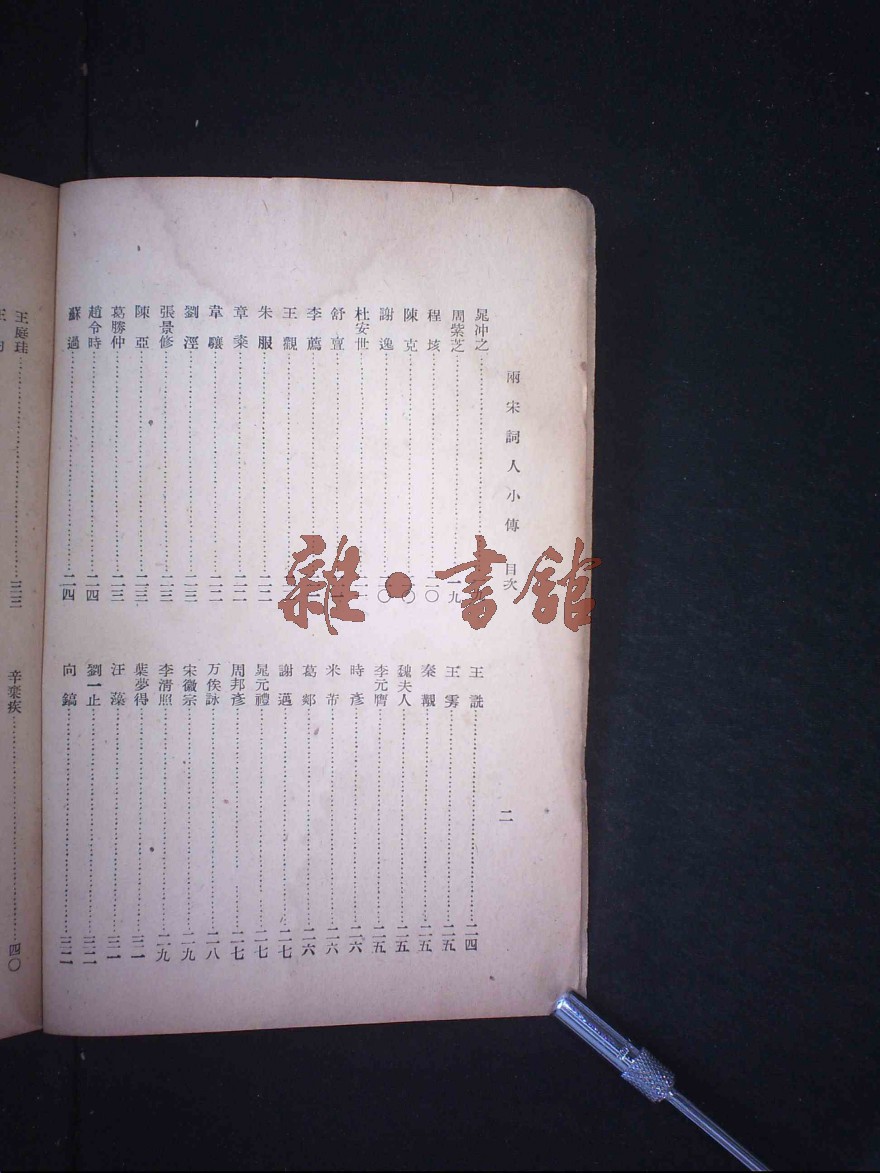 兩宋詞人小傳 目次
二
晁冲之
周紫芝……一九
程垓……二〇
陳克……二〇
謝逸……二〇
杜安世
舒亶
李薦
王觀
朱服……二二
章楶……二二
韋驤……二二
劉涇……二三
張景修……二三
陳亞……二三
葛勝仲……二三
趙令時……二四
蘇過……二四
王詵……二四
王雱……二五
秦覯……二五
魏夫人……二五
李元膺……二五
時彥……二六
米芾……二六
葛郯……二六
謝薖……二七
晁元禮……二七
周邦彥……二七
万俟詠……二八
宋徽宗……二九
李清照……二九
葉夢得……三一
汪藻……三一
劉一止……三二
向鎬……三二
王庭珪……三三
辛棄疾……四〇
雜·書館